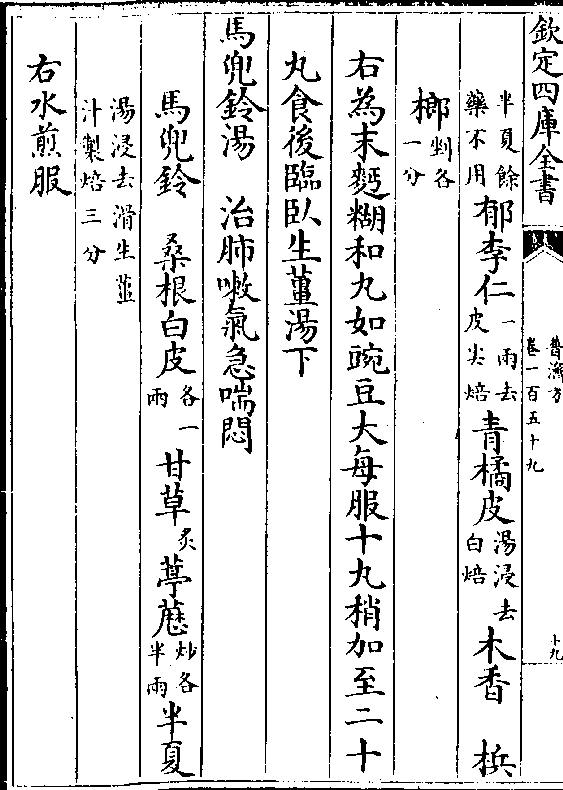 欽定四庫全書
普濟方
卷一百五十九
十九
半夏餘藥不用郁李仁一兩去皮尖焙青橘皮湯浸去白焙木香 檳
榔剉各一分
右為末麫糊和丸如豌豆大每服十丸稍加至二十
丸食後臨臥生薑湯下
馬兜鈴湯 治肺嗽氣急喘悶
馬兜鈴 桑根白皮各一兩甘草炙葶藶炒各半兩半夏
湯浸去滑生薑汁製焙三分
右水煎服